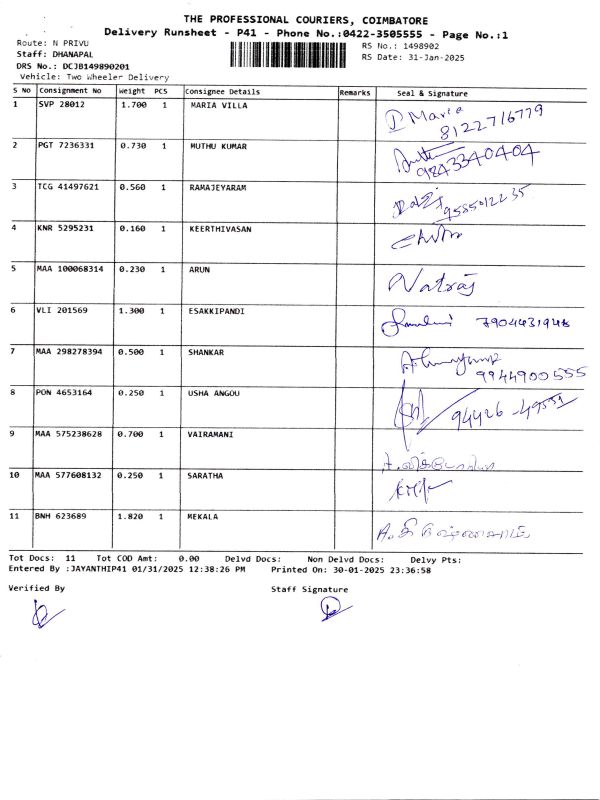 THE PROFESSIONAL COURIERS, COIMBATORE
Delivery Runsheet - P41 - Phone No.:0422-3505555 - Page No.:1
Route: N PRIVU RS No.: 1498902
Staff: DHANAPAL RS Date: 31-Jan-2025
DRS No.: DCJB149890201
Vehicle: Two Wheeler Delivery
S No Consignment No Weight PCS Consignee Details Remarks Seal & Signature
1 SVP 28012 1.700 1 MARIA VILLA Maria
8122716779
2 PGT 7236331 0.730 1 MUTHU KUMAR
9843340404
3 TCG 41497621 0.560 1 RAMAJEYARAM
4 KNR 5295231 0.160 1 KEERTHIVASAN
5 MAA 100068314 0.230 1 ARUN Natraj
6 VLI 201569 1.300 1 ESAKKIPANDI
7 MAA 298278394 0.500 1 SHANKAR
9944900555
8 PON 4653164 0.250 1 USHA ANGOU
9 MAA 575238628 0.700 1 VAIRAMANI
10 MAA 577608132 0.250 1 SARATHA
11 BNH 623689 1.820 1 MEKALA
Tot Docs: 11 Tot COD Amt: 0.00 Delvd Docs: Non Delvd Docs: Delvy Pts:
Entered By :JAYANTHIP41 01/31/2025 12:38:26 PM Printed On: 30-01-2025 23:36:58
Verified By Staff Signature